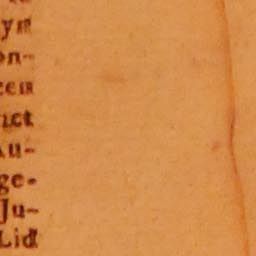 ym
on-
ten
nct
Au-
ge-
Ju-
Lid